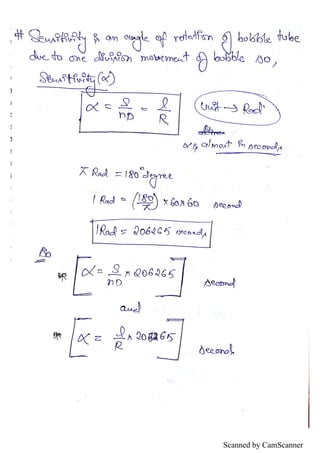 # Sensitivity is an angle of rotation of bubble tube
due to one division movement of bubble so,
Sensitivity (α)
α = S/nD = l/R
Unit → Rad
α is almost in seconds
π Rad = 180° degree
1 Rad = (180/π) × 60 × 60 second
1 Rad = 206265 seconds
So
α = S/nD × 206265 second
and
α = l/R × 206265 second
Scanned by CamScanner